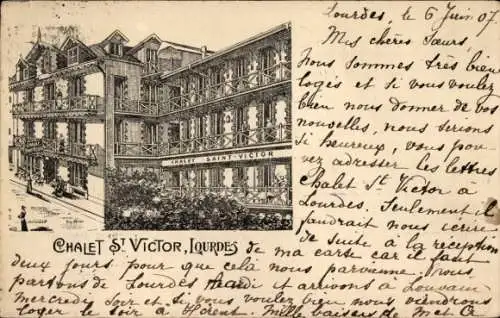 CHALET SAINT VICTOR
CHALET ST VICTOR, LOURDES
Lourdes, le 6 Juin 07
Mes chères Sœurs,
Nous sommes très bien
logés et si vous voulez
bien nous donner de vos
nouvelles, nous serions
si heureux, vous pou-
vez adresser les lettres
Chalet St Victor à
Lourdes. Seulement il
faudrait nous écrire
de suite à la réception
de ma carte car il faut
deux jours pour que cela nous parvienne, nous
partons de Lourdes Mardi et arrivons à Louvain
mercredi soir et si vous voulez bien nous viendrons
loger le soir à Herent. Mille baisers de M et C